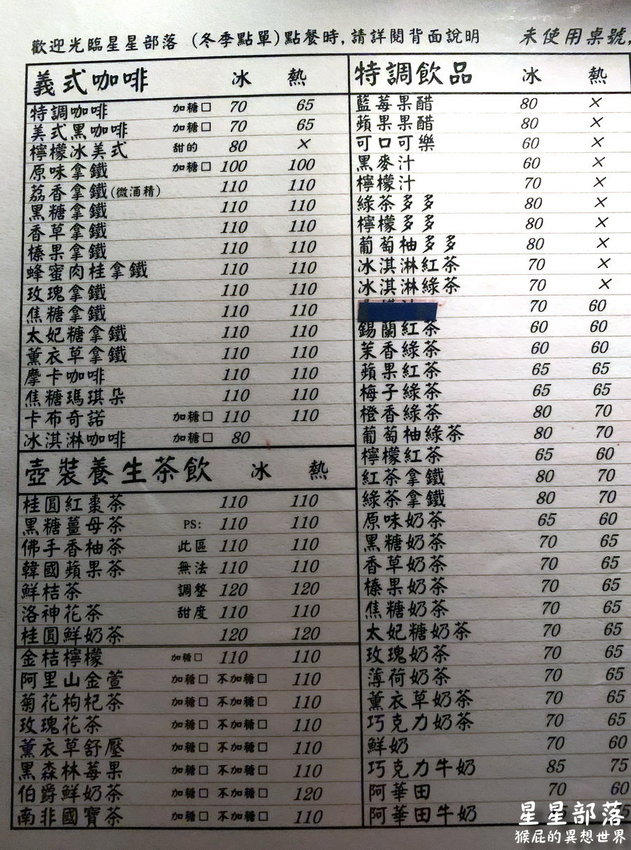 歡迎光臨星星部落 (冬季點單)點餐時,請詳閱背面說明 未使用桌號,
義式咖啡 冰 熱
特調咖啡 加糖□ 70 65
美式黑咖啡 加糖□ 70 65
檸檬冰美式 甜的 80 ×
原味拿鐵 加糖□ 100 100
荔香拿鐵(微酒精) 110 110
黑糖拿鐵 110 110
香草拿鐵 110 110
榛果拿鐵 110 110
蜂蜜肉桂拿鐵 110 110
玫瑰拿鐵 110 110
焦糖拿鐵 110 110
太妃糖拿鐵 110 110
薰衣草拿鐵 110 110
摩卡咖啡 110 110
焦糖瑪琪朵 110 110
卡布奇諾 加糖□ 110 110
冰淇淋咖啡 加糖□ 80
壺裝養生茶飲 冰 熱
桂圓紅棗茶 110 110
黑糖薑母茶 PS: 110 110
佛手香柚茶 此區 110 110
韓國蘋果茶 無法 110 110
鮮桔茶 調整 120 120
洛神花茶 甜度 110 110
桂圓鮮奶茶 120 120
金桔檸檬 加糖□ 110 110
阿里山金萱 加糖□ 不加糖□ 110
菊花枸杞茶 加糖□ 不加糖□ 110
玫瑰花茶 加糖□ 不加糖□ 110
薰衣草舒壓 加糖□ 不加糖□ 110
黑森林莓果 加糖□ 不加糖□ 110
伯爵鮮奶茶 加糖□ 不加糖□ 120
南非國寶茶 加糖□ 不加糖□ 110
特調飲品 冰 熱
藍莓果醋 80 ×
蘋果果醋 80 ×
可口可樂 60 ×
黑麥汁 60 ×
檸檬汁 70 ×
綠茶多多 80 ×
檸檬多多 80 ×
葡萄柚多多 80 ×
冰淇淋紅茶 70 ×
冰淇淋綠茶 70 ×
70 60
錫蘭紅茶 60 60
茉香綠茶 60 60
蘋果紅茶 65 65
梅子綠茶 65 65
橙香綠茶 80 70
葡萄柚綠茶 80 70
檸檬紅茶 65 60
紅茶拿鐵 80 70
綠茶拿鐵 80 70
原味奶茶 65 60
黑糖奶茶 70 65
香草奶茶 70 65
榛果奶茶 70 65
焦糖奶茶 70 65
太妃糖奶茶 70 65
玫瑰奶茶 70 65
薄荷奶茶 70 65
薰衣草奶茶 70 65
巧克力奶茶 70 65
鮮奶 70 60
巧克力牛奶 85 75
阿華田 70 60
阿華田牛奶
星星部落
猴屁的異想世界